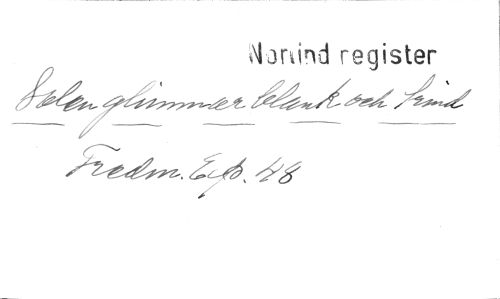 Norlind register
Solen glimmar blank och trind
Fredm. Ep. 48